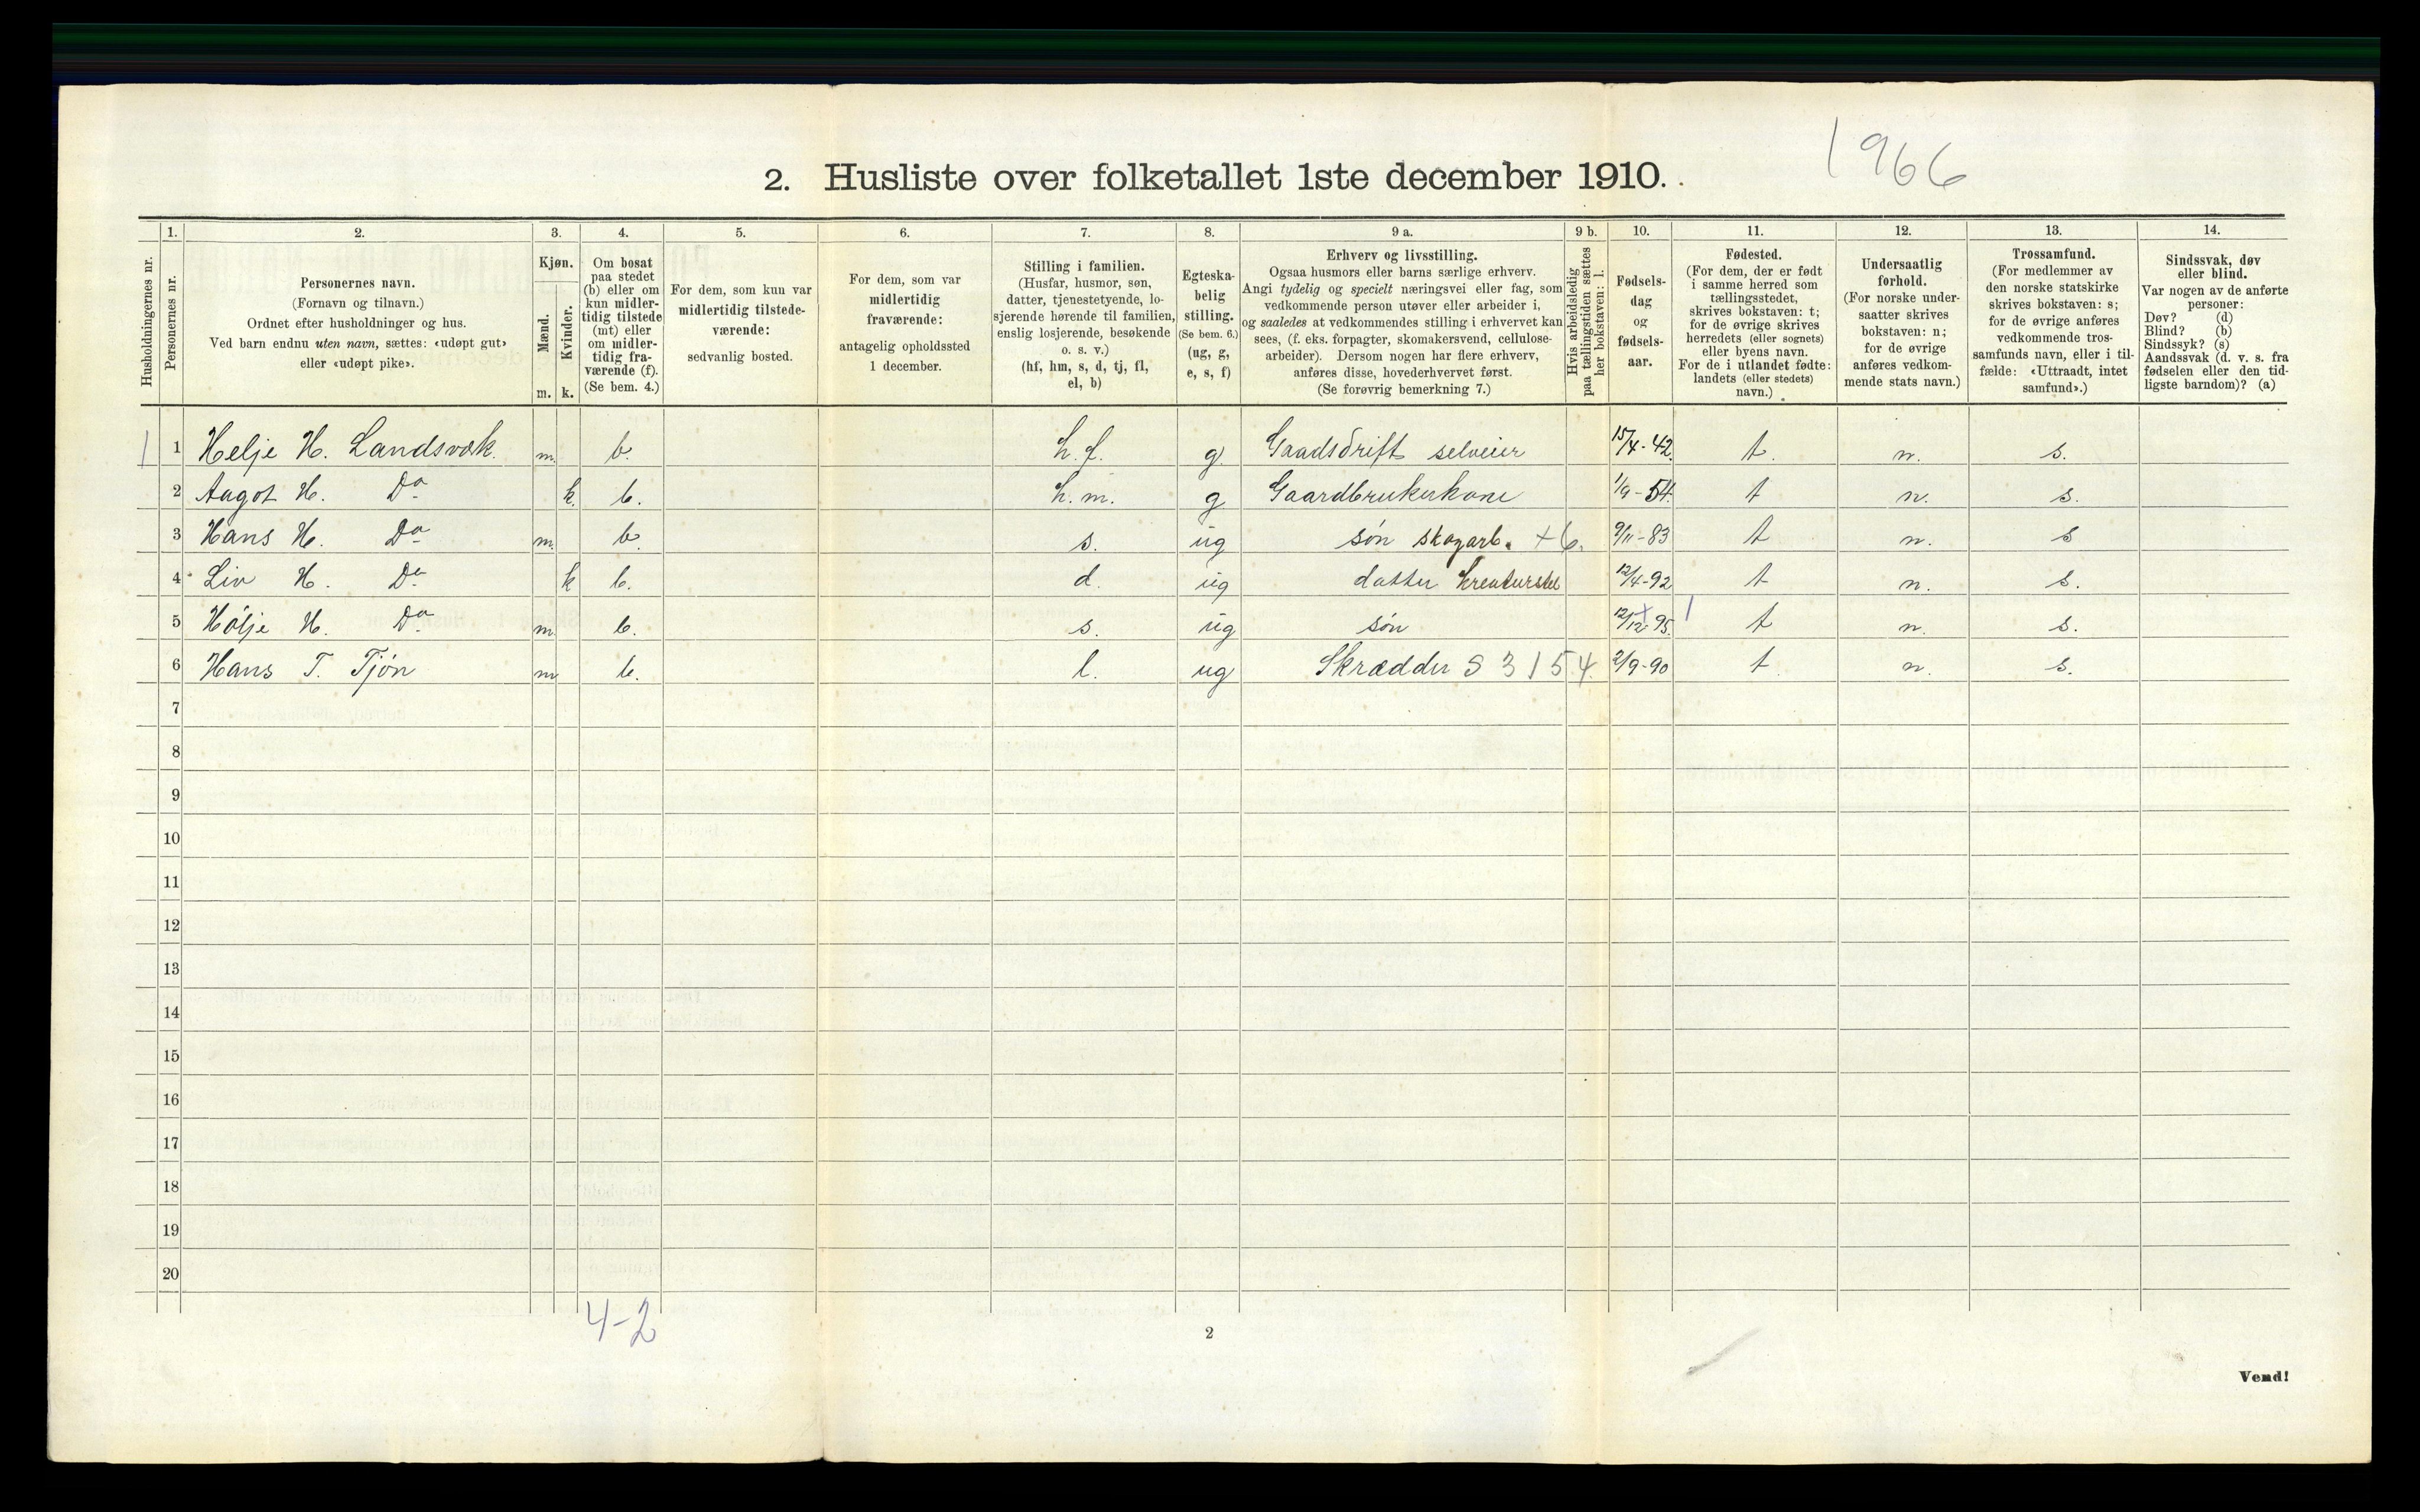 1966
2. Husliste over folketallet 1ste december 1910.
Husholdningernes nr.
1. Personernes nr.
2. Personernes navn. (Fornavn og tilnavn.) Ordnet efter husholdninger og hus. Ved barn endnu uten navn, sættes: «udøpt gut» eller «udøpt pike».
3. Kjøn. Mænd. m. Kvinder. k.
4. Om bosat paa stedet (b) eller om kun midlertidig tilstede (mt) eller om midlertidig fraværende (f). (Se bem. 4.)
5. For dem, som kun var midlertidig tilstedeværende: sedvanlig bosted.
6. For dem, som var midlertidig fraværende: antagelig opholdssted 1 december.
7. Stilling i familien. (Husfar, husmor, søn, datter, tjenestetyende, losjerende hørende til familien, enslig losjerende, besøkende o. s. v.) (hf, hm, s, d, tj, fl, el, b)
8. Egteskabelig stilling. (Se bem. 6.) (ug, g, e, s, f)
9 a. Erhverv og livsstilling. Ogsaa husmors eller barns særlige erhverv. Angi tydelig og specielt næringsvei eller fag, som vedkommende person utøver eller arbeider i, og saaledes at vedkommendes stilling i erhvervet kan sees, (f. eks. forpagter, skomakersvend, cellulosearbeider). Dersom nogen har flere erhverv, anføres disse, hovederhvervet først. (Se forøvrig bemerkning 7.)
9 b. Hvis arbeidsledig paa tællingstiden sættes her bokstaven: l.
10. Fødselsdag og fødselsaar.
11. Fødested. (For dem, der er født i samme herred som tællingsstedet, skrives bokstaven: t; for de øvrige skrives herredets (eller sognets) eller byens navn. For de i utlandet fødte: landets (eller stedets) navn.)
12. Undersaatlig forhold. (For norske undersaatter skrives bokstaven: n; for de øvrige anføres vedkommende stats navn.)
13. Trossamfund. (For medlemmer av den norske statskirke skrives bokstaven: s; for de øvrige anføres vedkommende trossamfunds navn, eller i tilfælde: «Uttraadt, intet samfund».)
14. Sindssvak, døv eller blind. Var nogen av de anførte personer: Døv? (d) Blind? (b) Sindssyk? (s) Aandssvak (d. v. s. fra fødselen eller den tidligste barndom)? (a)
1 1 Helje H. Landsvæk. m. b. h.f. g. Gaadsdrift selveier 15/4-42. t. n. s.
2 Aagot H. Do k. b. h.m. g Gaardbrukerkone 1/9-54. t n. s.
3 Hans H. Do m. b. s. ug søn skogarb. +6. 9/11-83 t n. s
4 Liv H. Do k b. d. ug datter kreaturstel 12/4-92 t n. s.
5 Hölje H. Do m. b. s. ug søn 12/12-95. t n. s.
6 Hans T. Tjön m b. l. ug Skrædder S 3154 2/9-90 t. n. s.
7
8
9
10
11
12
13
14
15
16
17
18
19
20
4-2
2
Vend!